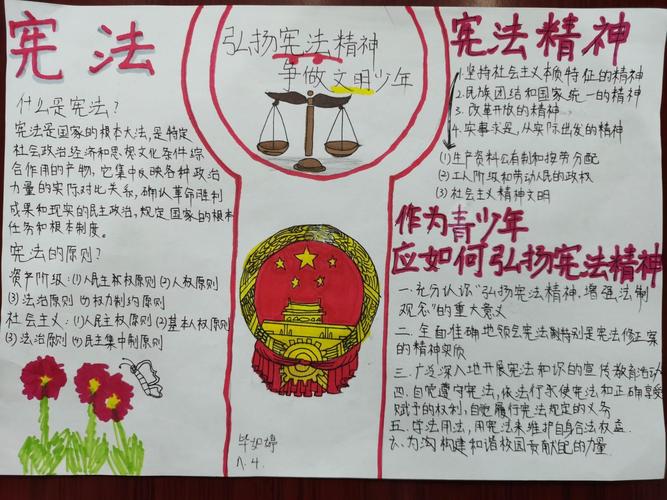 宪法
什么是宪法?
宪法是国家的根本大法,是特定
社会政治经济和思想文化条件综
合作用的产物,它集中反映各种政治
力量的实际对比关系,确认革命胜利
成果和现实的民主政治,规定国家的根本
任务和根本制度。
宪法的原则?
资产阶级:(1)人民主权原则(2)人权原则
(3)法治原则 (4)权力制约原则
社会主义:(1)人民主权原则(2)基本人权原则
(3)法治原则(4)民主集中制原则
弘扬宪法精神
争做文明少年
毕如婷
八.4.
宪法精神
1.坚持社会主义本质特征的精神
2.民族团结和国家统一的精神
3.改革开放的精神
4.实事求是,从实际出发的精神
(1)生产资料公有制和按劳分配
(2)工人阶级和劳动人民的政权
(3)社会主义精神文明
作为青少年
应如何弘扬宪法精神
一.充分认识"弘扬宪法精神,增强法制
观念"的重大意义
二.全面准确地领会宪法特别是宪法修正案
的精神实质
三.广泛深入地开展宪法知识的宣传教育活动
四.自觉遵守宪法,依法行使宪法和正确享受
赋予的权利,自觉履行宪法规定的义务
五.学法用法,用宪法来维护自身合法权益.
六.为构建和谐校园贡献的力量.